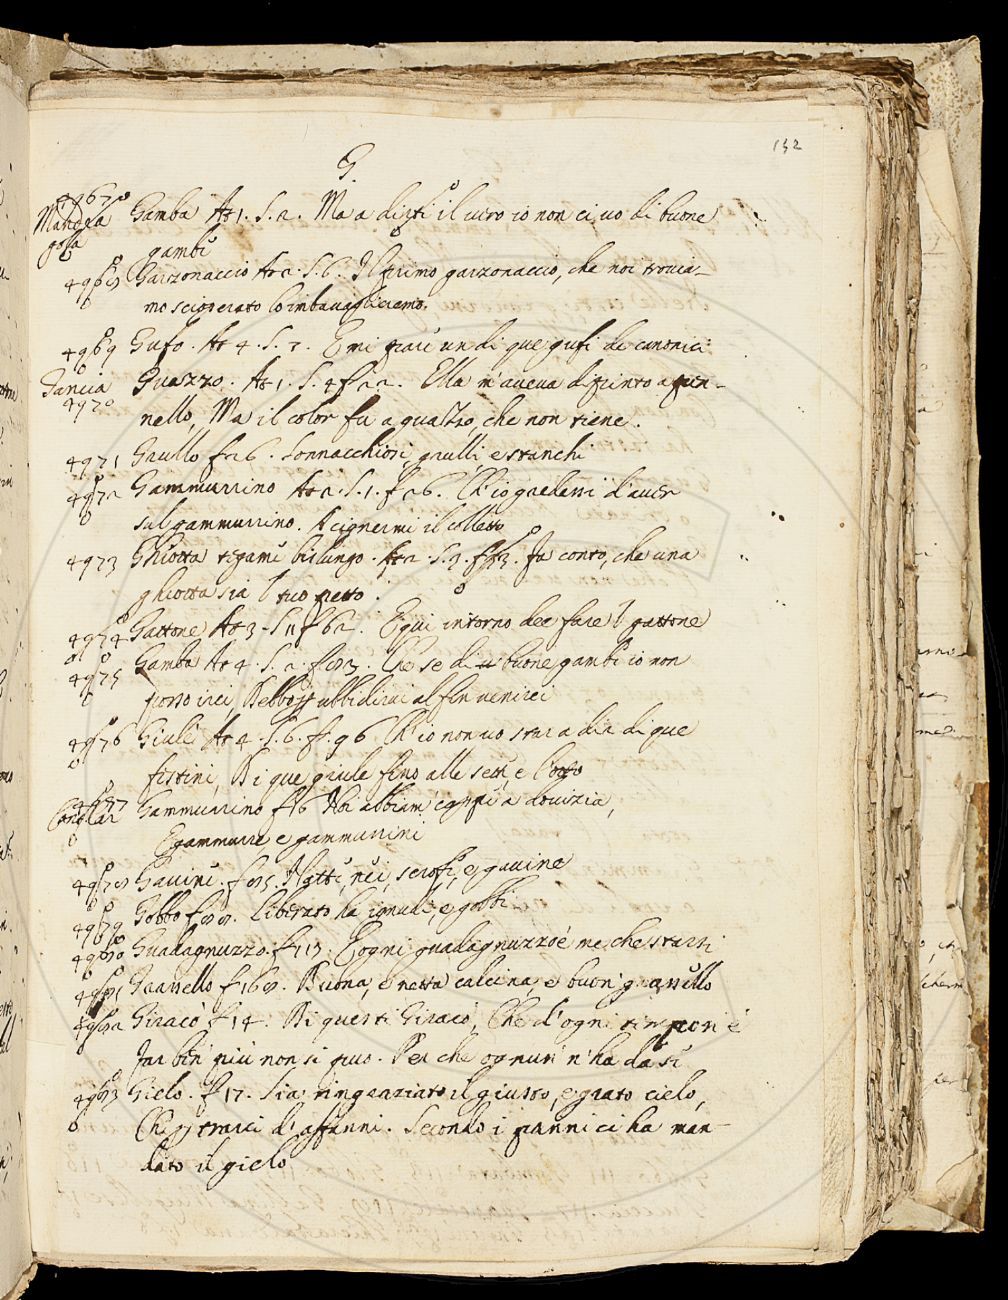 132
G
4967 Gamba At 1. S. 2. Ma a dirti il vero io non ci vo di buone
Mandra
gola gambi
4968 Garzonaccio At 2. S. 6. Il primo garzonaccio, che noi trovia-
mo scioperato lo imbavagliciamo.
4969 Gufo. At 4. S. 7. E mi par un di que gufi de canonici
Gancia Guazzo. At 1. S. 4 f 22. Ella m'aveva dipinto a pen-
4970
nello, Ma il color fu a guazzo, che non tiene.
4971 Grullo f 26. Sonnacchiosi grulli e stanchi
4972 Gammurrino At 2. S. 1. f 26. Ch'io credessi d'aver
sul gammurrino. A cignermi il colletto
4973 Ghiotta tegame bislungo. At 2. S. 3. f 43. Fa conto, che una
ghiotta sia l tuo petto.
4974 Gattone At 3. S. 11 f 62. E qui intorno dee fare l gattone
4975 Gamba At 4. S. 2. f 83. Che se di buone gambe io non
posso irci Debbo ubbidirvi al fin venirci
4976 Giulè At 4. S. 6. f. 96. Ch'io non vo star a dia di que
festini, Di que giule fino alle sette, e l'otto
4977 Gammurrino f 16 Noi abbiam a dovizia,
E gammurre e gammurrini
4978 Gavine. f 85. Natte, nei, scrofe, e gavine
4979 Gobbo f 88. Liberato ha ignudi, e gobbi
4980 Guadagnuzzo. f 113. E ogni guadagnuzzo è me, che starsi
4981 Granello f 168. Buona, e netta calcina, e buon granello
4982 Giracò f 14. Di questi Giracò, Che d'ogni tempo n'è
Far ben più non si può. Per che ognun n'ha da sè
4983 Gielo. f 17. Sia ringraziato il giusto, e grato cielo,
Che trarci d'affanni. Secondo i panni ci ha man-
dato il gielo